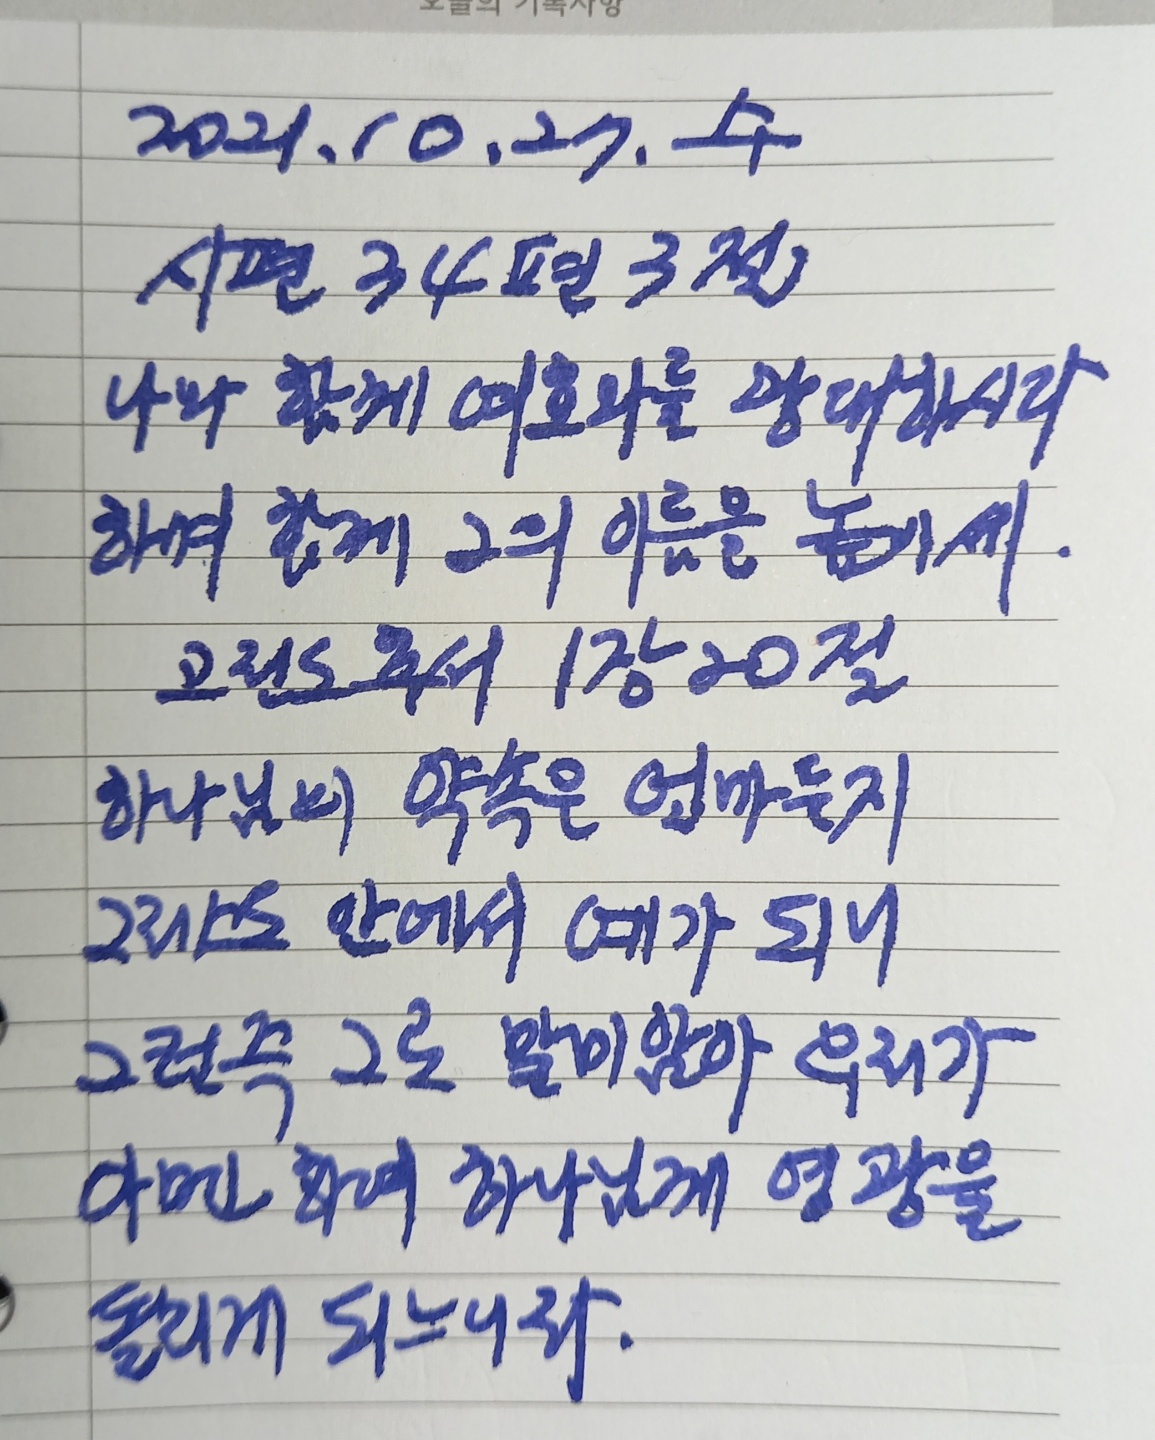 오늘의 기록사항
2021.10.27. 수
시편 34편 3절
나와 함께 여호와를 광대하시다
하며 함께 그의 이름을 높이세.
고린도후서 1장 20절
하나님의 약속은 얼마든지
그리스도 안에서 예가 되니
그런즉 그로 말미암아 우리가
아멘 하여 하나님께 영광을
돌리게 되느니라.